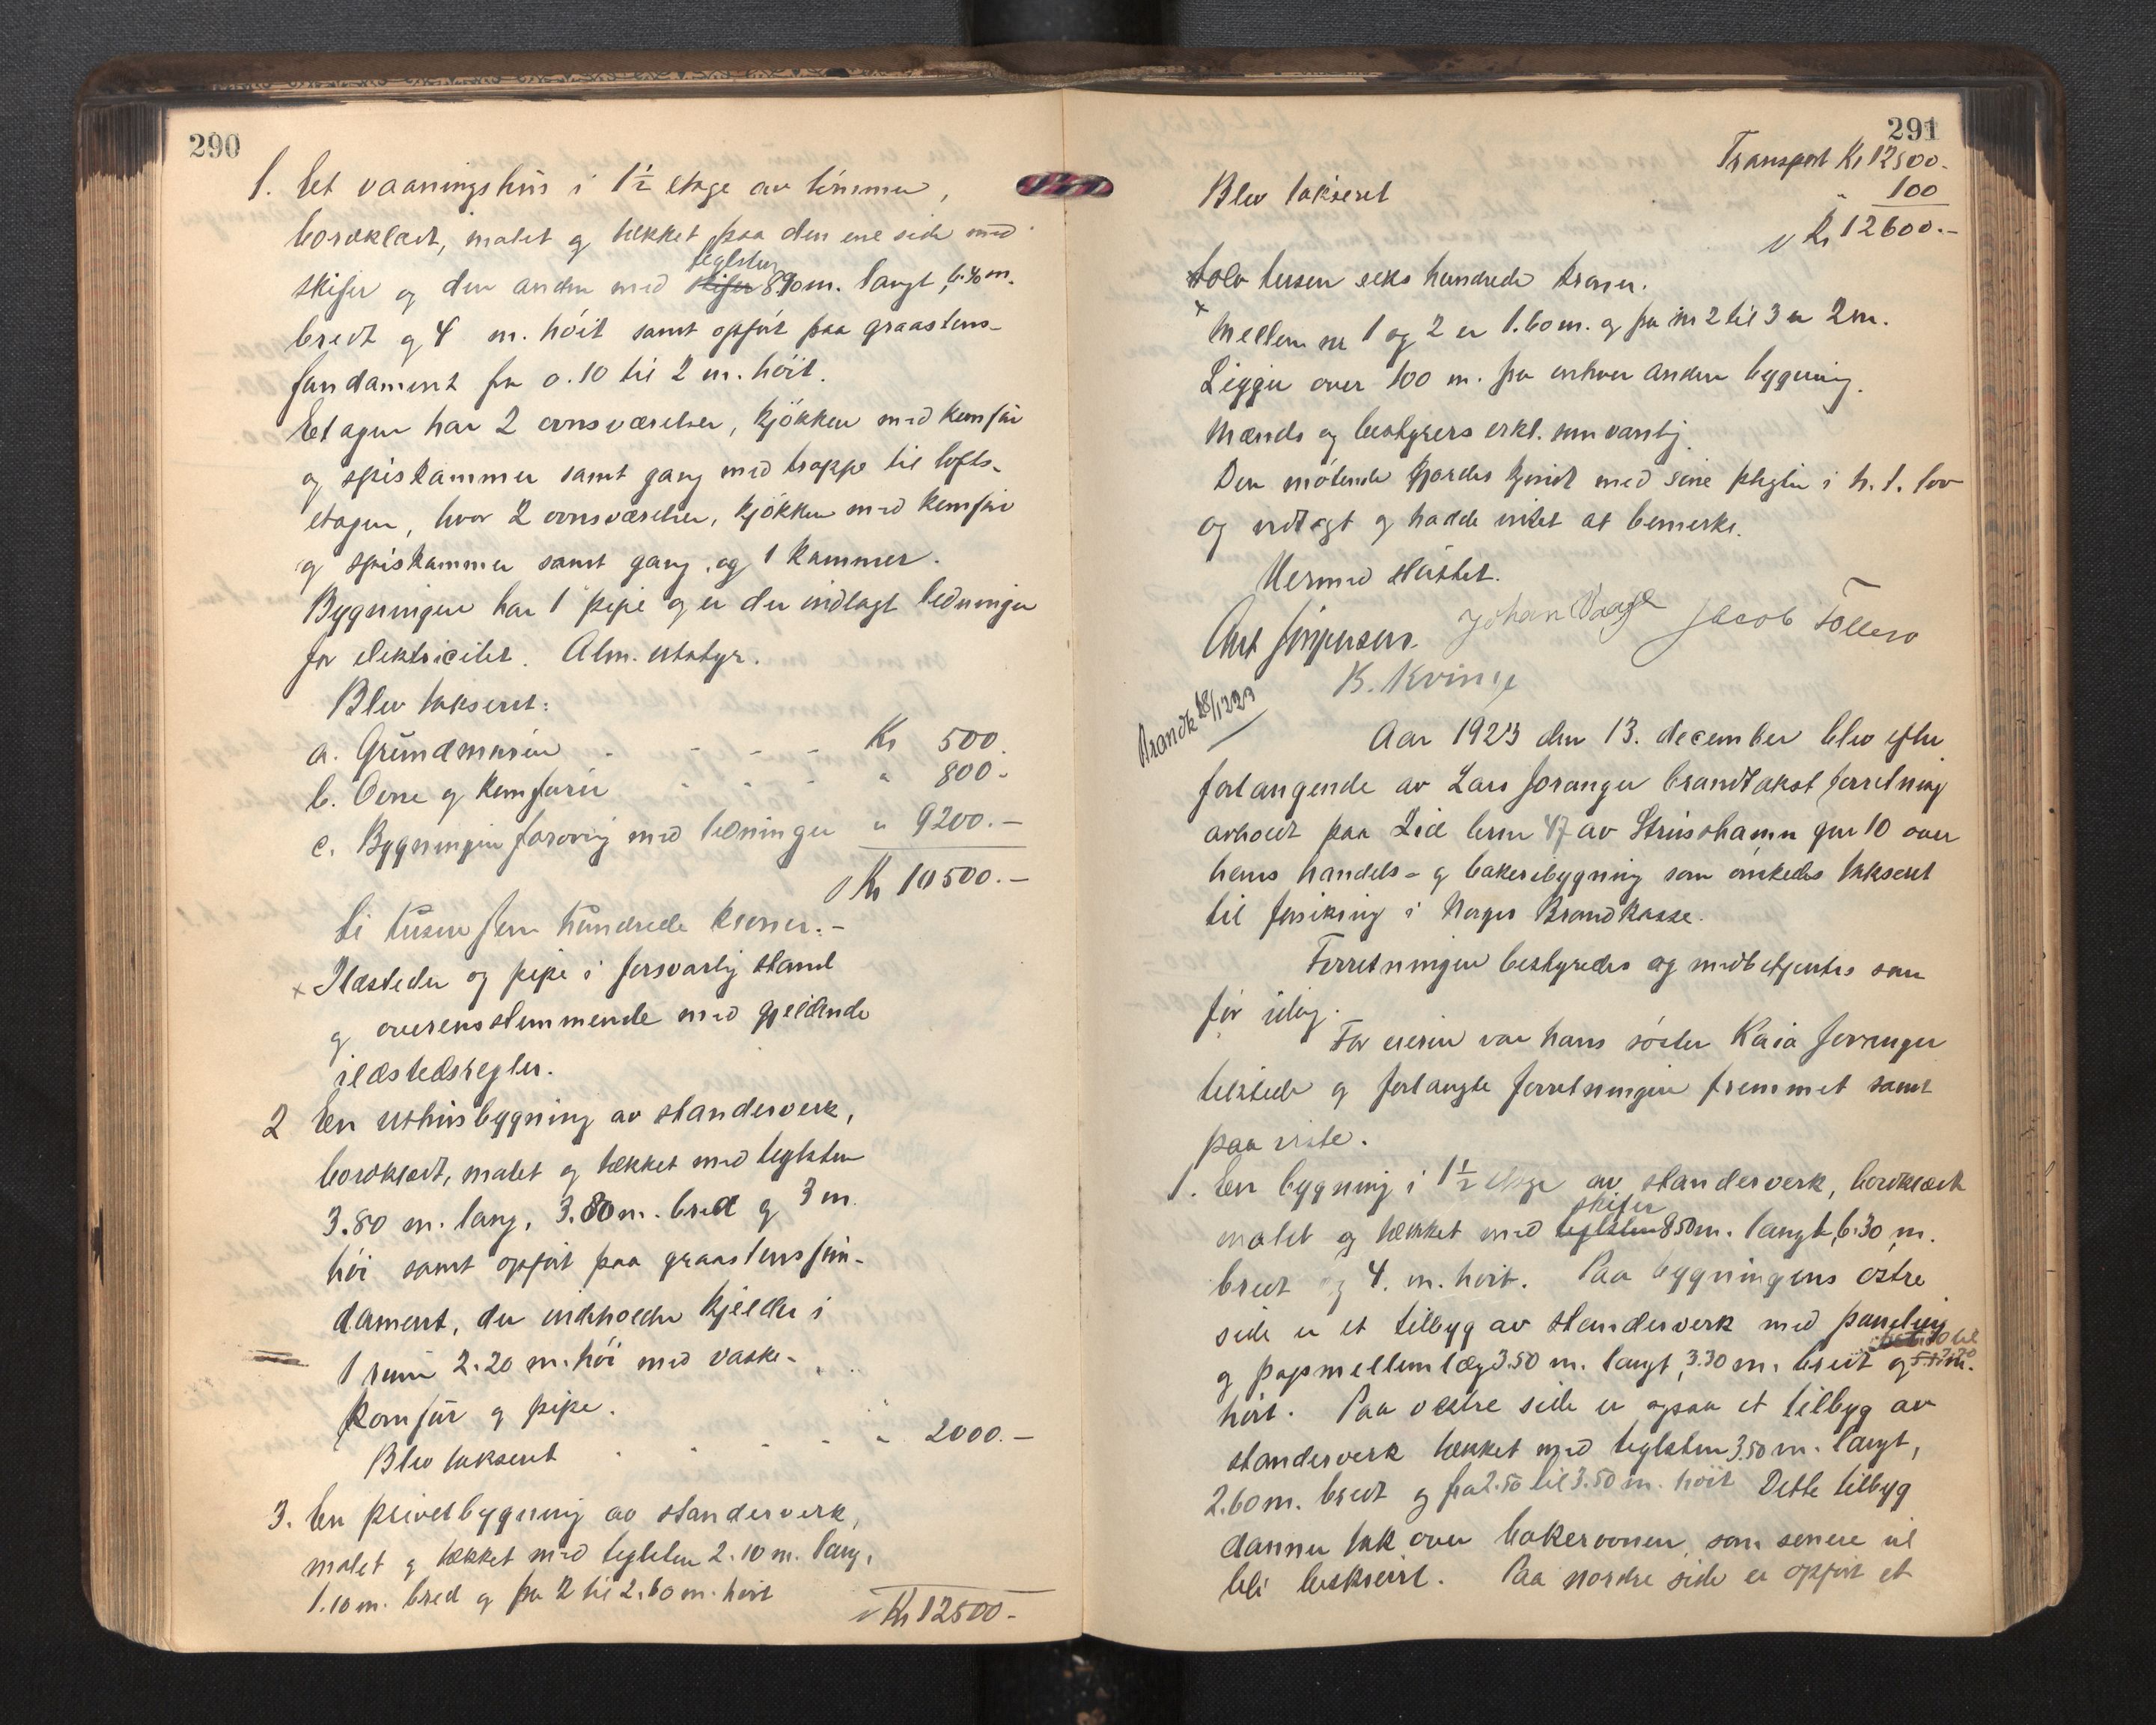 290
1. Et vaaningshus i 1½ etage av tømmer,
bordklædt, malet og tækket paa den ene side med
teglsten
skifer og den anden med skifer 8.90 m. langt, 6.40 m.
bredt og 4 m. høit samt opført paa graastens-
fundament fra 0.10 til 2 m. høit.
Etagen har 2 ovnsværelser, kjøkken med komfur
og spiskammer samt gang med trappe til lofts-
etagen, hvor 2 ovnsværelser, kjøkken med komfur
og spiskammer samt gang og 1 kammer.
Bygningen har 1 pipe og er der indlagt ledninger
for elektricitet. Alm. utstyr.
Blev taksert:
a. Grundmuren - - - - Kr 500.
b. Ovne og komfurer - - - " 800.-
c. Bygningen forøvrig med ledninger " 9200.-
Kr 10500.-
ti tusen fem hundrede kroner.-
x Ildsteder og pipe i forsvarlig stand
og overensstemmende med gjeldende
ildstedsregler.
2 En uthusbygning av standerverk,
bordklædt, malet og tækket med teglsten
3.80 m. lang, 3.80 m. bred og 3 m.
høi samt opført paa graastensfun-
dament, der indeholder kjelder i
1 rum 2.20 m. høi med vaske-
komfur og pipe.
Blev taksert - - - - " 2000.-
3. En privetbygning av standerverk,
malet og tækket med teglsten 2.10 m. lang,
1.10 m. bred og fra 2 til 2.60 m. høit
Kr 12500-
291
Transport Kr 12500.-
Blev taksert " 100
Kr 12600.-
tolv tusen seks hundrede kroner.
x
Mellem nr 1 og 2 er 1.60 m. og fra nr 2 til 3 er 2 m.
Ligger over 100 m. fra enhver anden bygning.
Mænds og bestyrers erkl. som vanlig.
Den møtende gjordes kjendt med sine pligter i h. t. lov
og vedtægt og hadde intet at bemerke.
Hermed sluttet.
Johan Vaage Jacob Tollero
K. Kvinge
Brandk 28/12 23
Aar 1923 den 13. december blev efter
forlangende av Lars Joranger brandtakst forretning
avholdt paa Lid brnr 47 av Strusshamn gnr 10 over
hans handels- og bakeribygning som ønskedes taksert
til forsikring i Norges Brandkasse.
Forretningen bestyredes og medbetjentes som
før idag.
For eieren var hans søster Kaia Joranger
tilstede og forlangte forretningen fremmet samt
paaviste.
1. En bygning i 1½ etage av standerverk, bordklædt
skifer
malet og tækket med teglsten 8.50 m. langt, 6.30 m.
bredt og 4. m. høit. Paa bygningens østre
side er et tilbyg av standerverk med paneling
og papmellemlæg 3.50 m. langt, 3.30 m. bredt og m.
høit. Paa vestre side er ogsaa et tilbyg av
standerverk tækket med teglsten 3.50 m. langt,
2.60 m. bredt og fra 2.50 til 3.50 m. høit Dette tilbyg
danner tak over bakerovnen, som senere vil
bli beskrevet. Paa nordre side er opført et